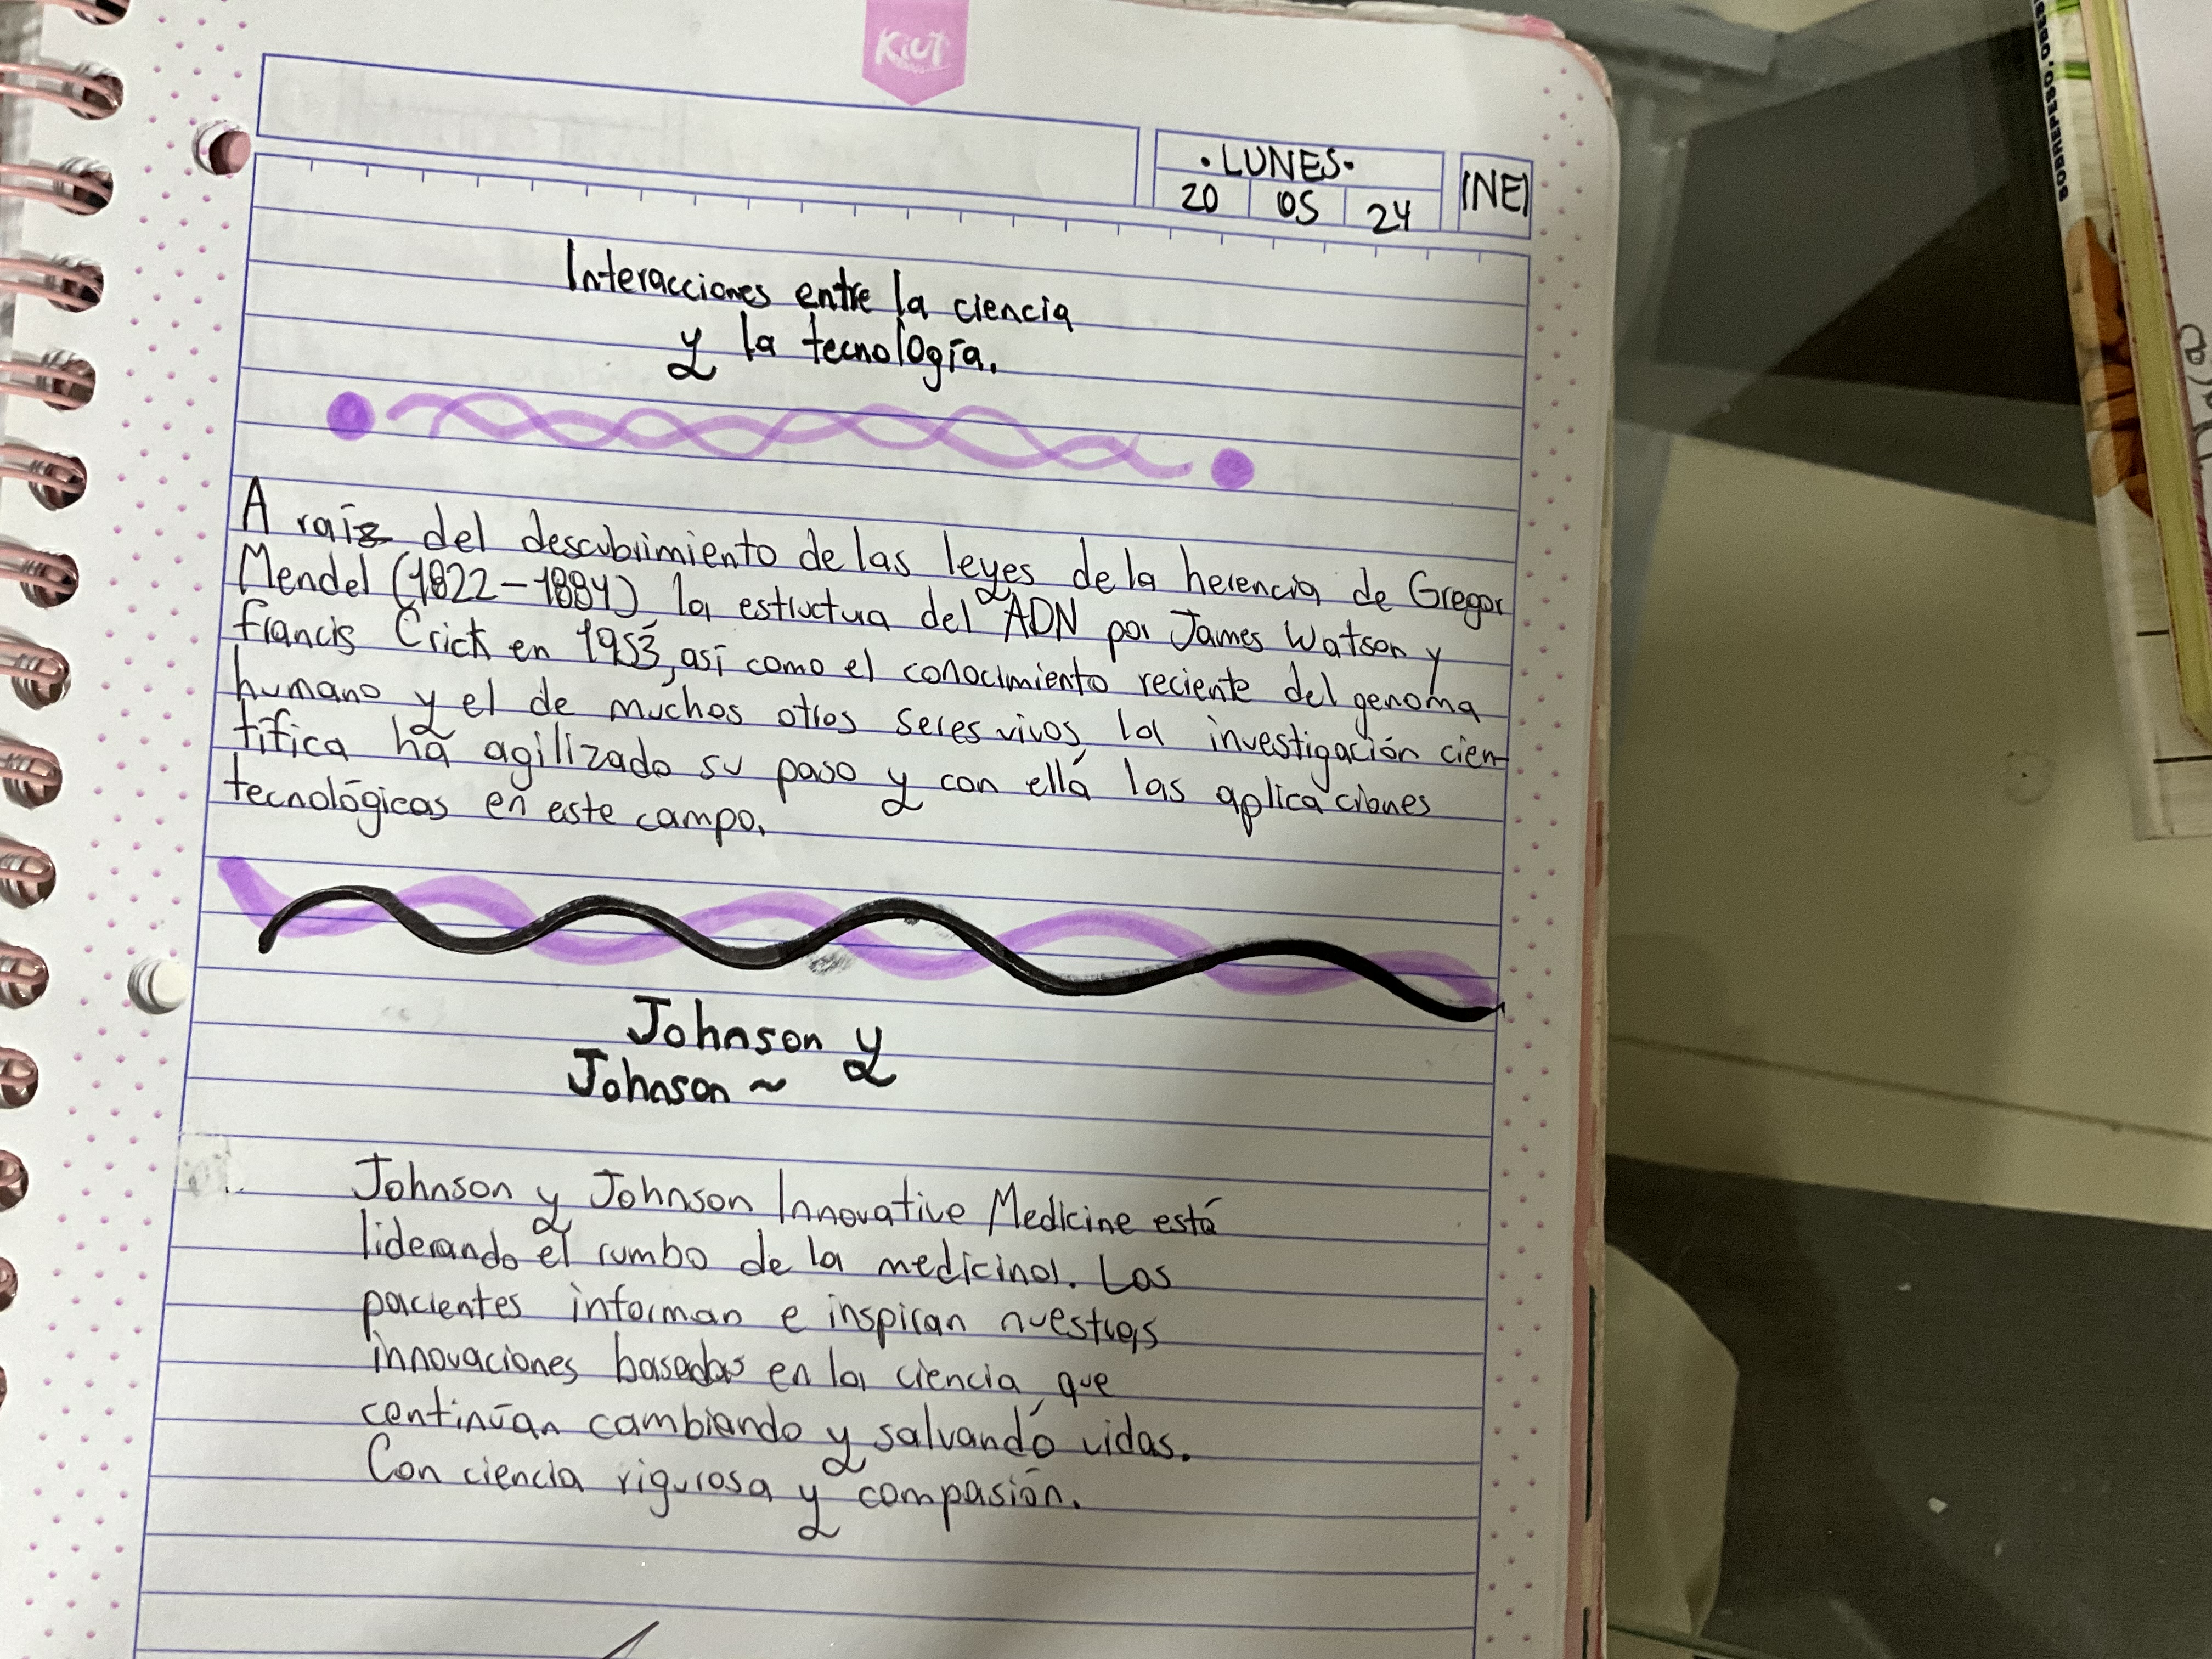 Kiut
• LUNES •
20 05 24
INE
Interacciones entre la ciencia
y la tecnología.
A raíz del descubrimiento de las leyes de la herencia de Gregor
Mendel (1822-1884) la estructura del ADN por James Watson y
Francis Crick en 1953, así como el conocimiento reciente del genoma
humano y el de muchos otros seres vivos, la investigación cien-
tífica ha agilizado su paso y con ella las aplicaciones
tecnológicas en este campo.
Johnson y
Johnson ~
Johnson y Johnson Innovative Medicine está
liderando el rumbo de la medicina. Los
pacientes informan e inspiran nuestras
innovaciones basadas en la ciencia, que
continúan cambiando y salvando vidas.
Con ciencia rigurosa y compasión.